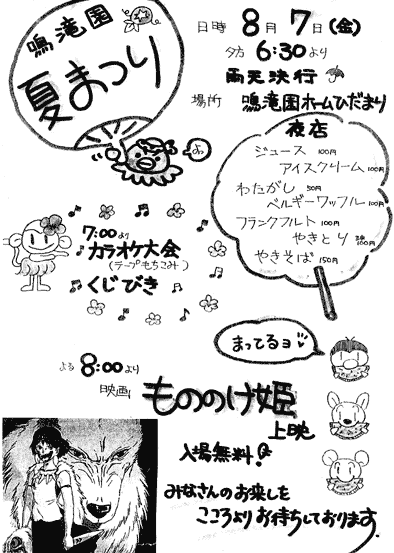 鳴滝園
夏まつり
日時 8月7日(金)
夕方 6:30より
雨天決行
場所 鳴滝園ホームひだまり
夜店
ジュース 100円
アイスクリーム 100円
わたがし 50円
ベルギーワッフル 100円
フランクフルト 100円
やきとり 100円
やきそば 150円
7:00より
カラオケ大会
(テープもちこみ)
くじびき
まってるヨ
よる 8:00より
映画 もののけ姫
上映
入場無料!
みなさんのお来しを
こころよりお待ちしております。